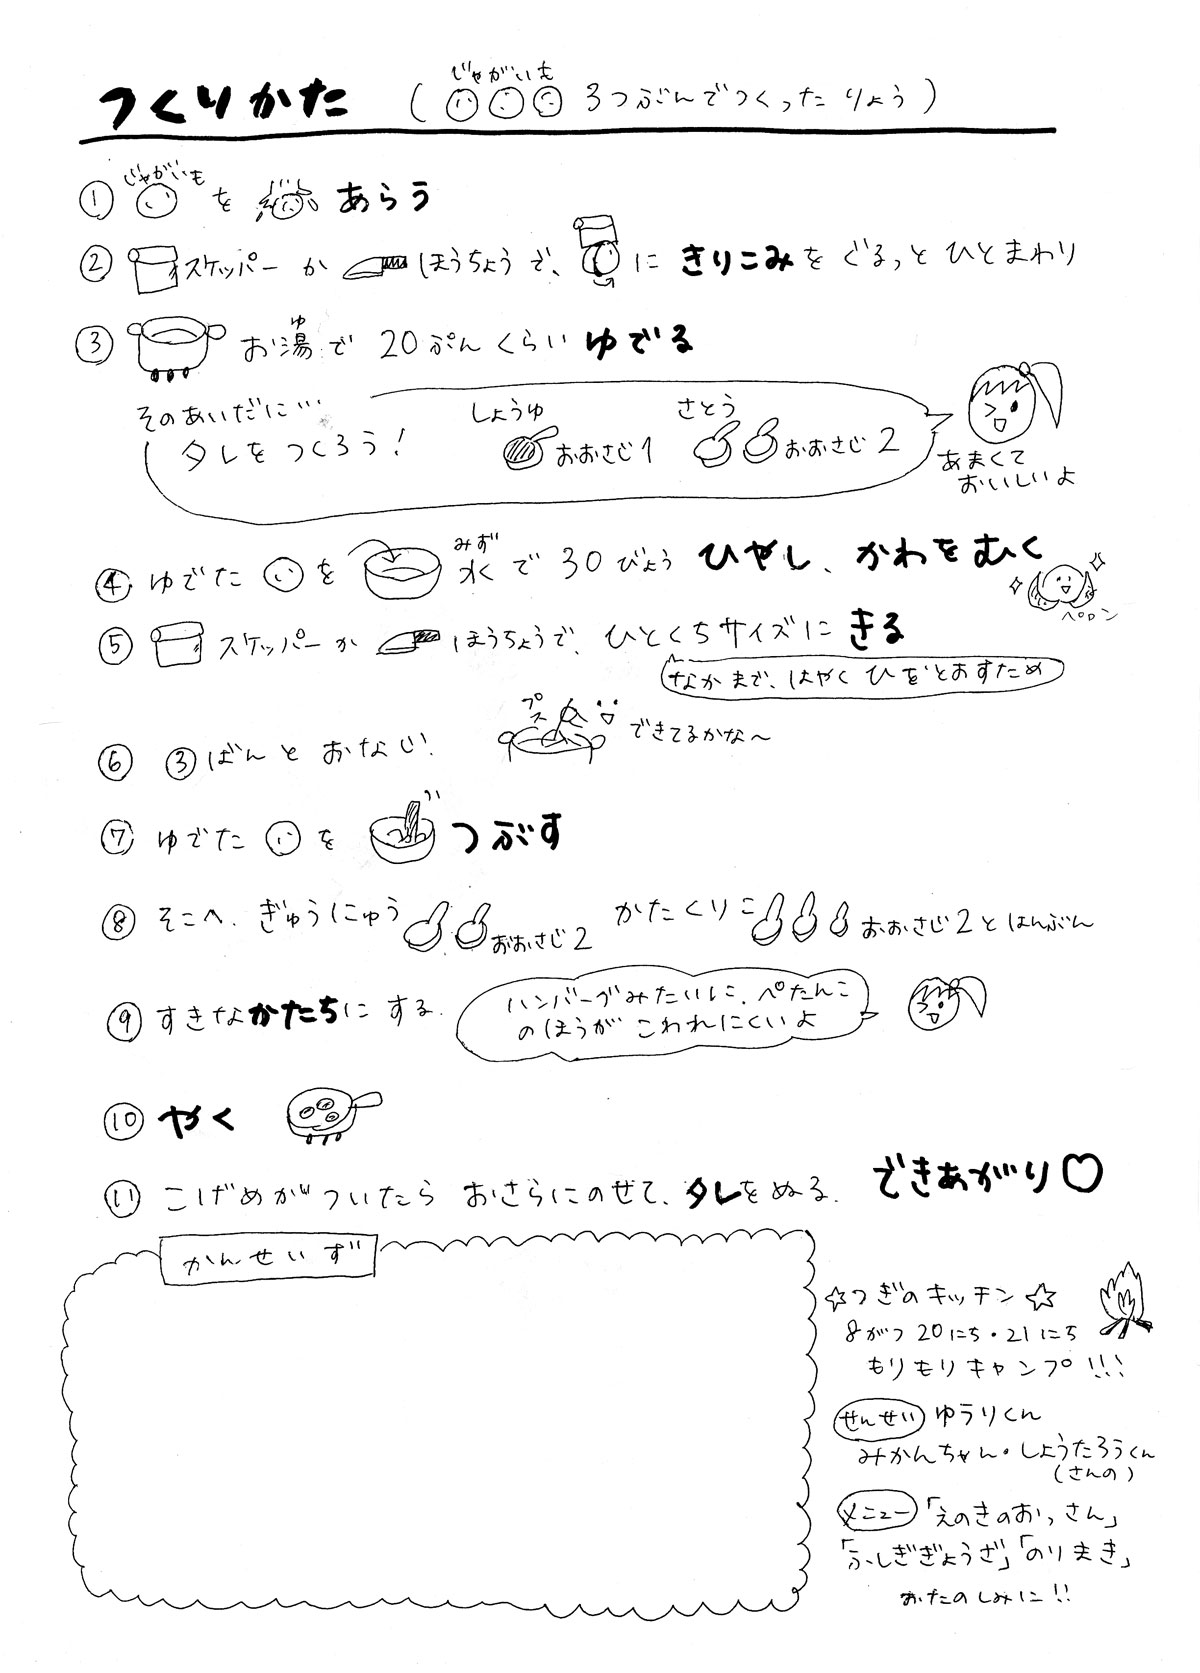 つくりかた （じゃがいも 3つぶんでつくった りょう）
① じゃがいも を あらう
② スケッパー か ほうちょう で、 に きりこみを ぐるっと ひとまわり
③ お湯で 20ぷん くらい ゆでる
ゆ
そのあいだに…
タレを つくろう！
しょうゆ おおさじ1
さとう おおさじ2
あまくて
おいしいよ
④ ゆでた を 水で 30びょう ひやし、かわをむく
みず
ペロン
⑤ スケッパー か ほうちょうで、ひとくちサイズに きる
なかまで、はやく ひをとおすため
⑥ ③ばんと おなじ.
プス
できてるかな〜
⑦ ゆでた を つぶす
⑧ そこへ. ぎゅうにゅう おおさじ2 かたくりこ おおさじ2とはんぶん
⑨ すきなかたちに する.
ハンバーグみたいに、ぺたんこ
のほうが こわれにくいよ
⑩ やく
⑪ こげめがついたら おさらにのせて、タレをぬる. できあがり♡
かんせいず
☆つぎのキッチン☆
8がつ 20にち・21にち
もりもりキャンプ!!!
せんせい ゆうりくん
みかんちゃん・しょうたろうくん
（さんの）
メニュー 「えのきのおっさん」
「ふしぎぎょうざ」「のりまき」
おたのしみに!!